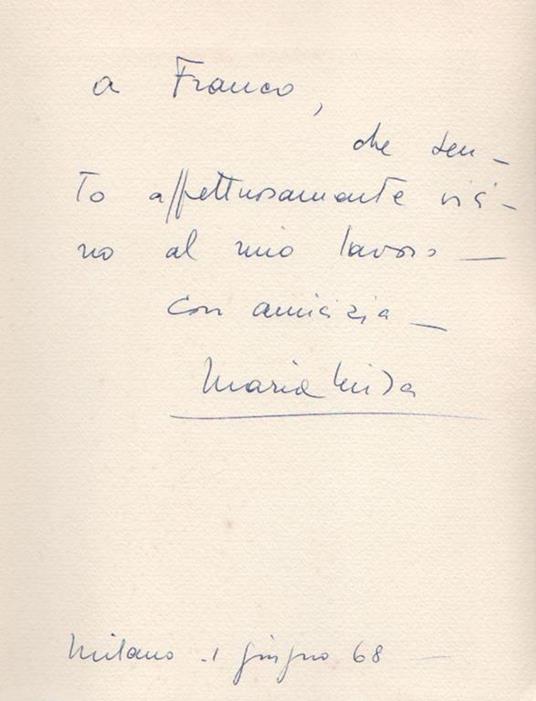 a Franco,
che sen-
to affettuosamente vici-
no al mio lavoro —
con amicizia —
Maria Luisa
Milano . 1 giugno 68 —